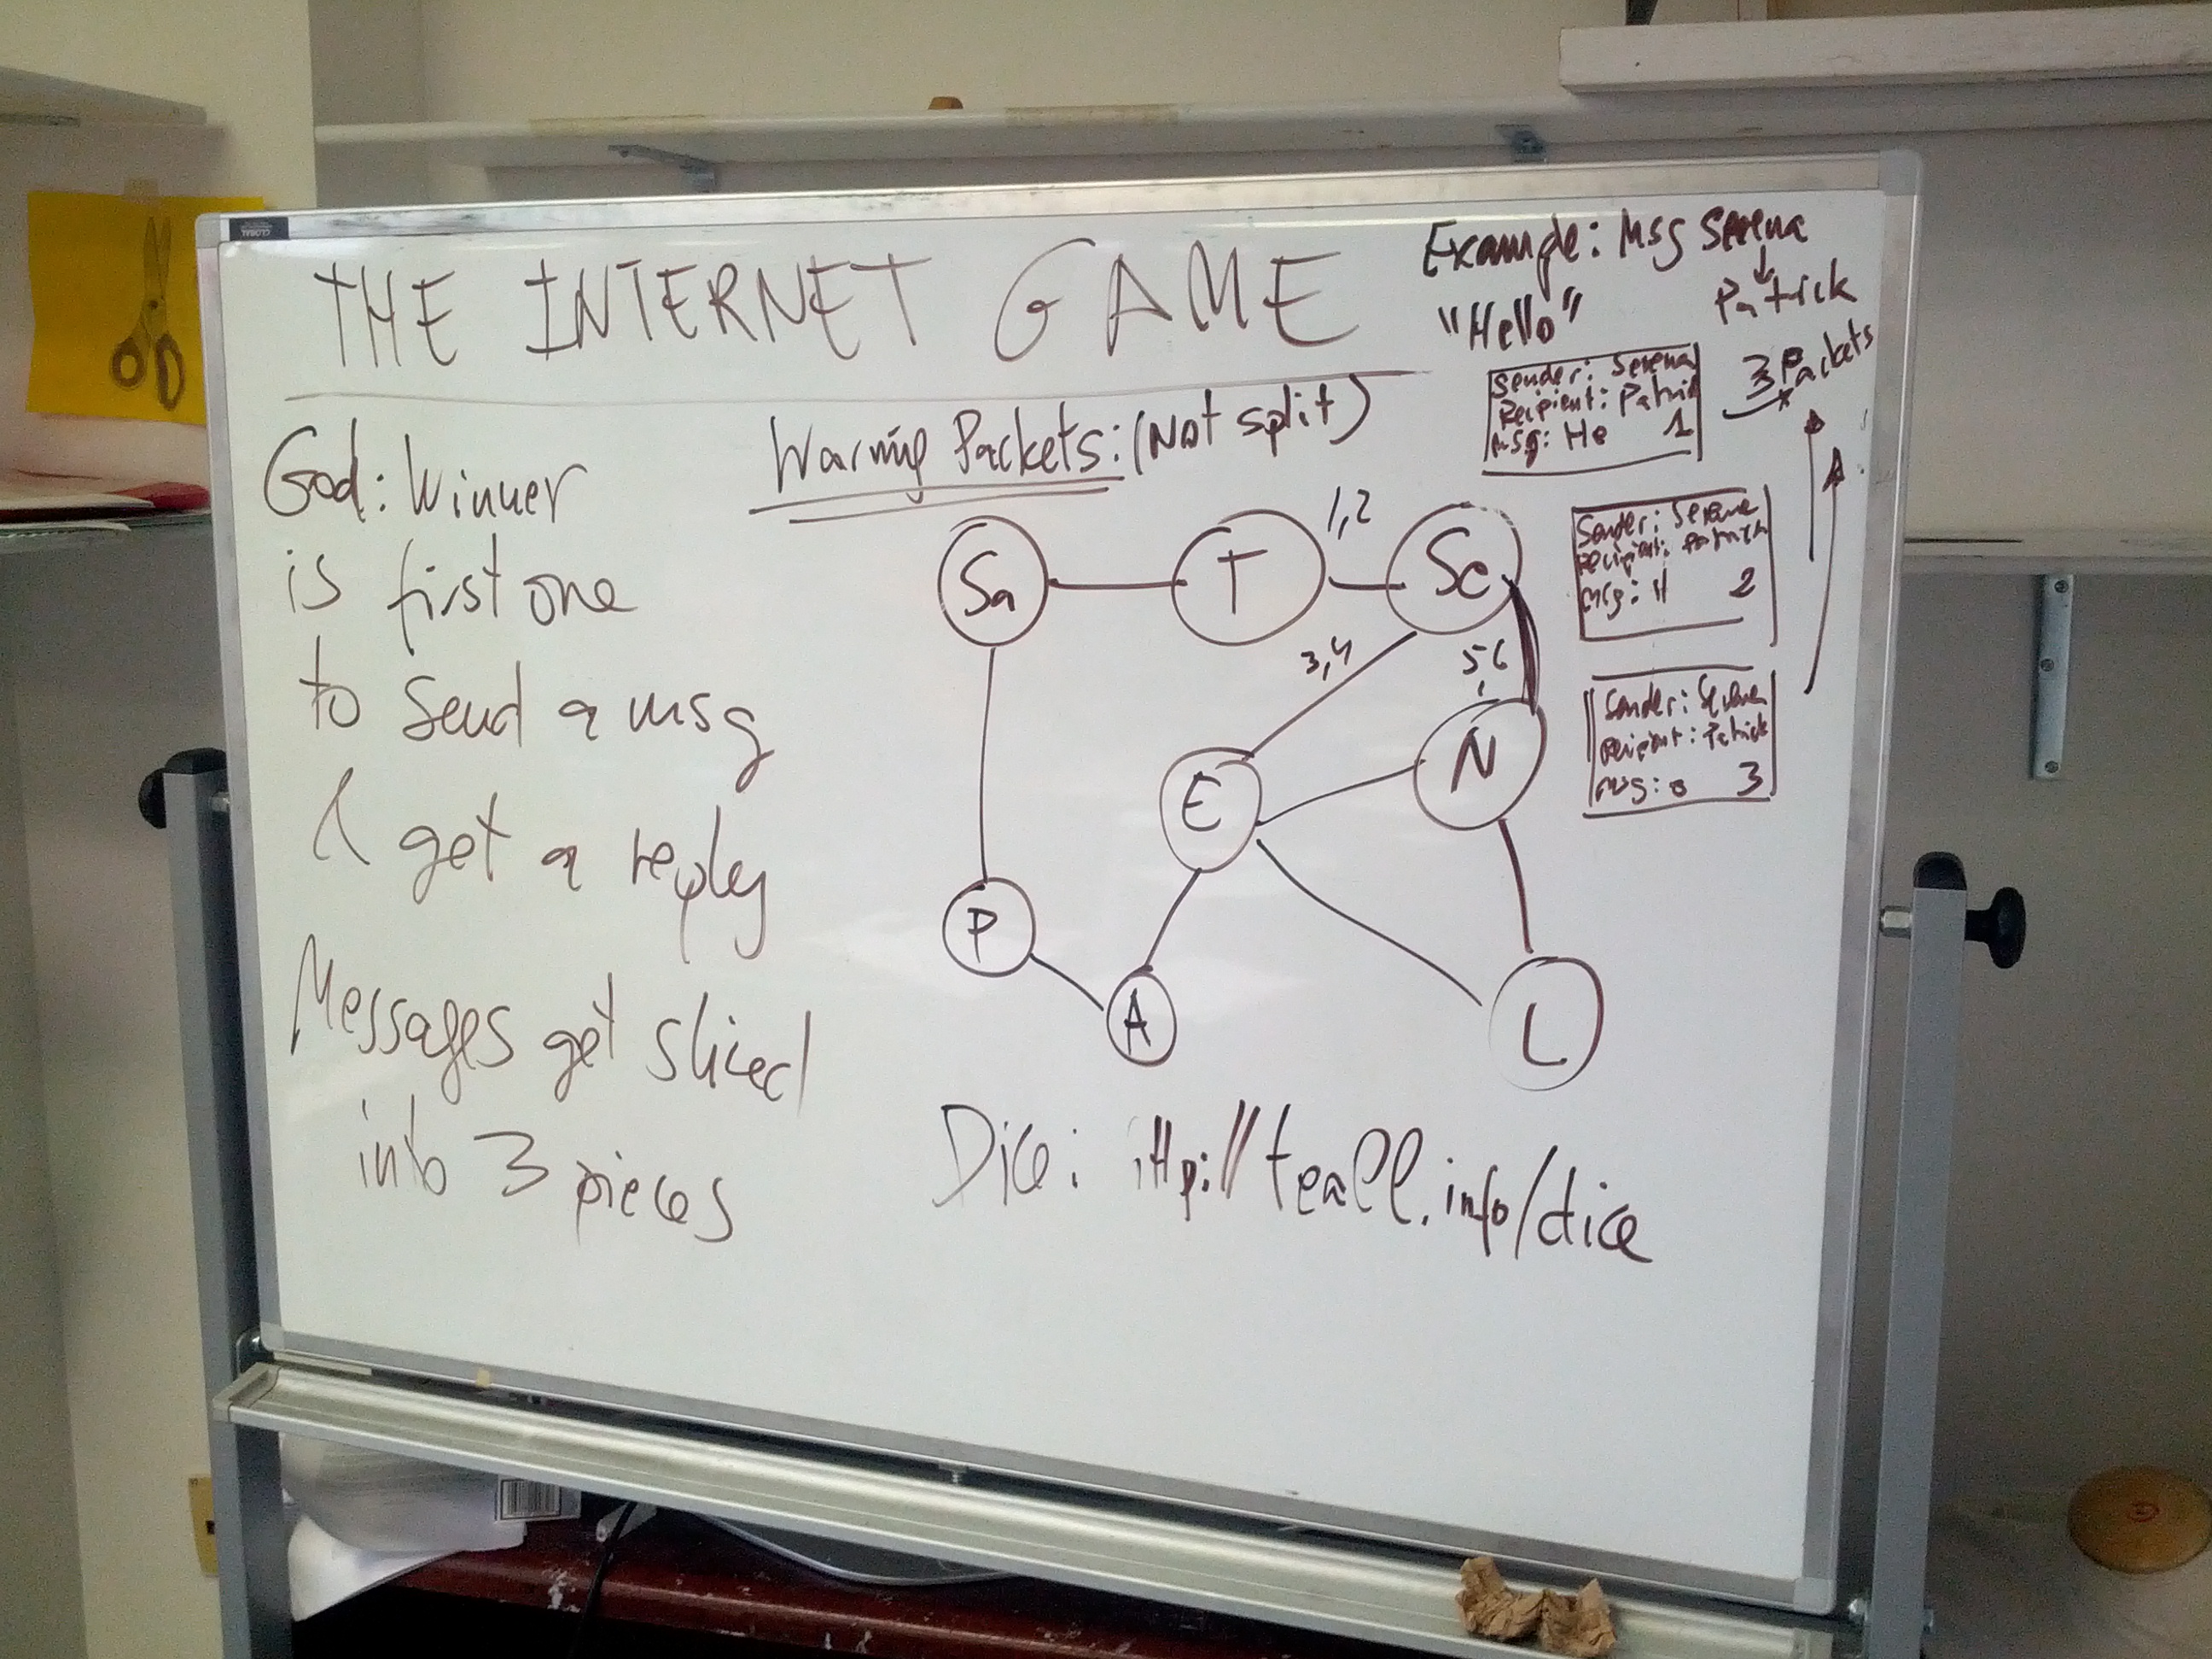 THE INTERNET GAME
God: Winner
is first one
to send a msg
& get a reply
Messages get sliced
into 3 pieces
Warning Packets: (Not split)
Sa
T
1,2
Se
3,4
5,6
E
N
P
A
L
Dice: http://teall.info/dice
Example: Msg Serena
↓
Patrick
"Hello"
3 Packets
Sender: Serena
Recipient: Patrick
Msg: He 1
Sender: Serena
Recipient: Patrick
Msg: ll 2
Sender: Serena
Recipient: Patrick
Msg: o 3
GLOBAL